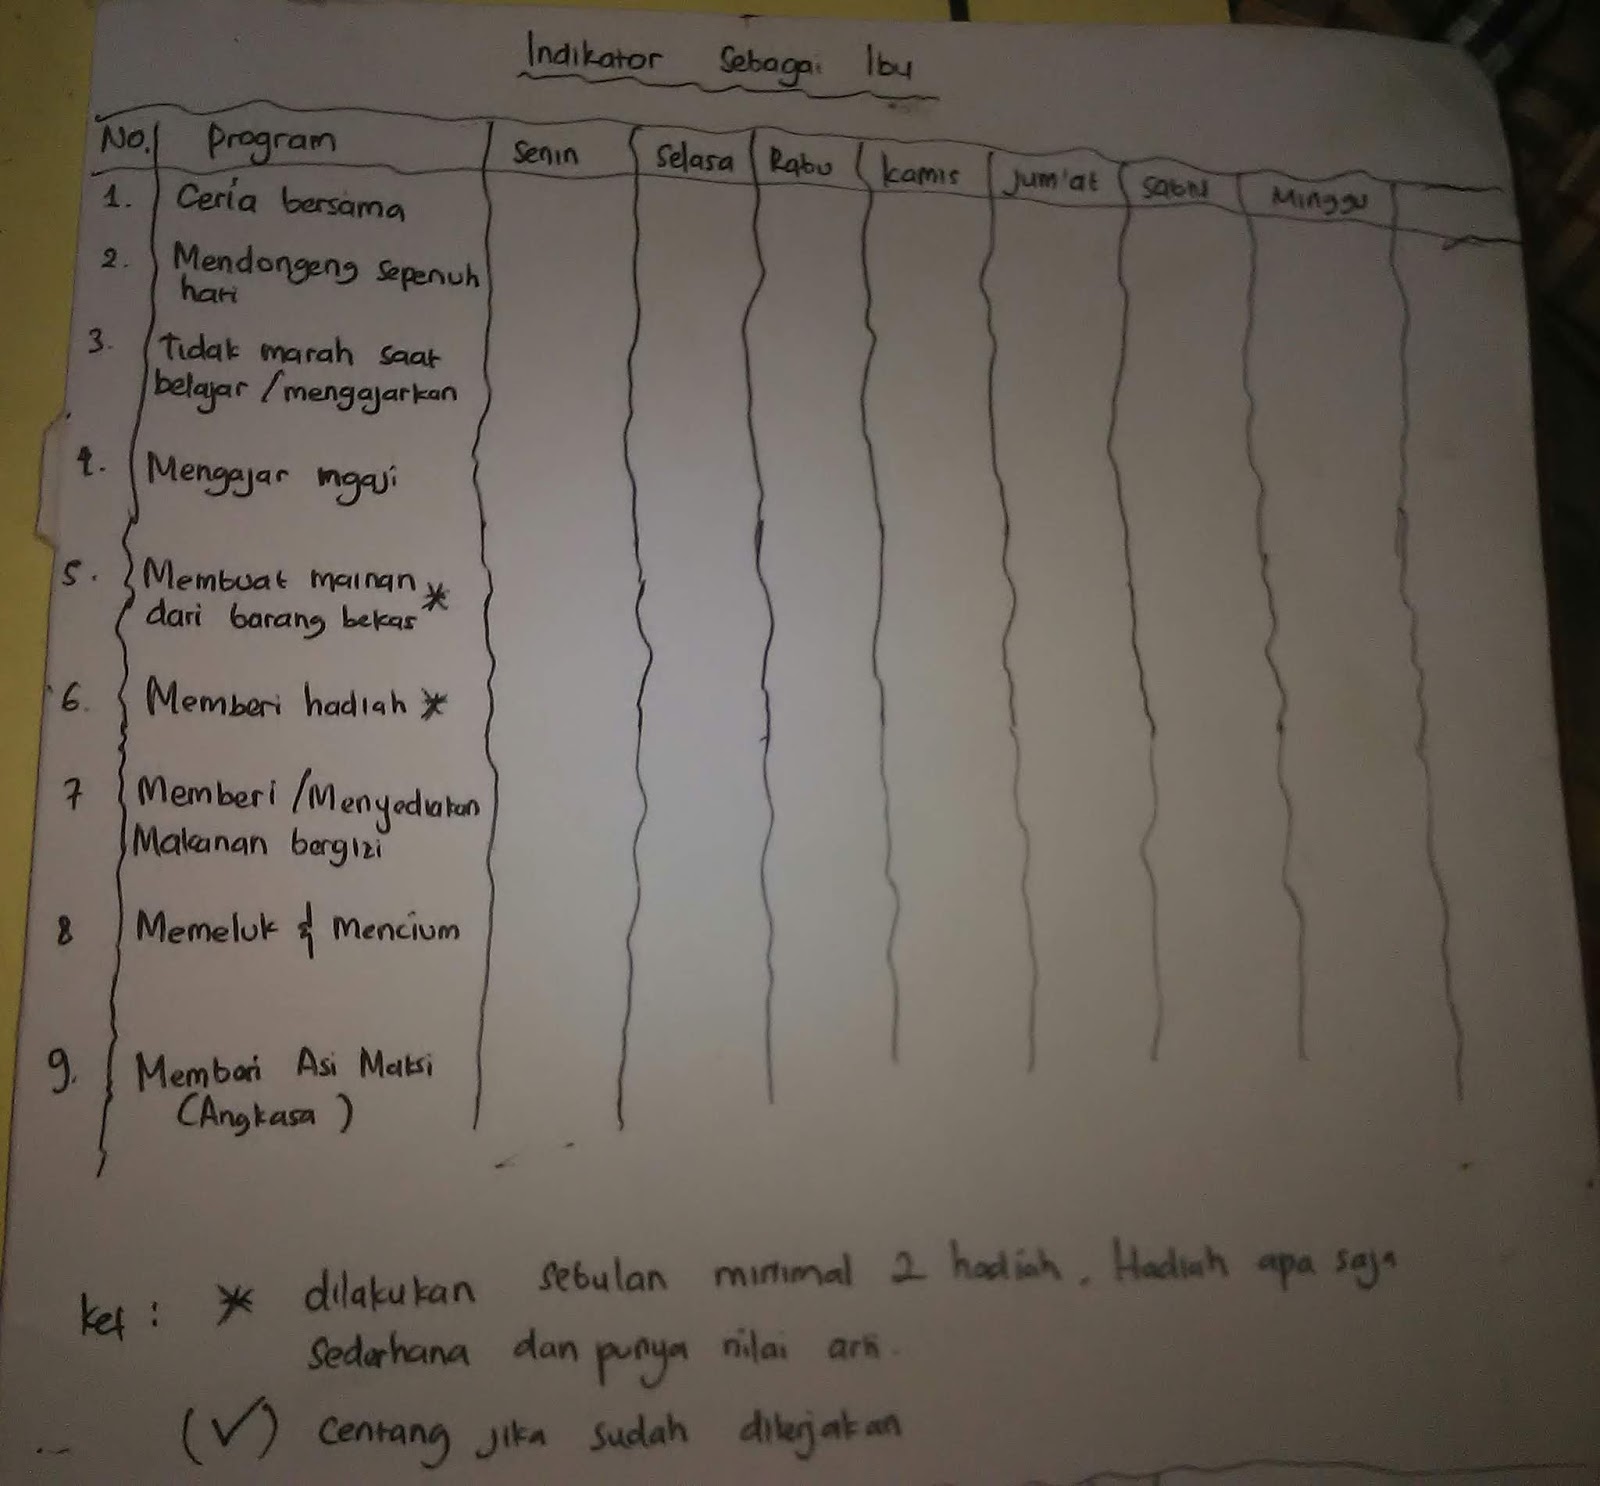 Indikator Sebagai Ibu
No. Program Senin Selasa Rabu Kamis Jum'at Sabtu Minggu
1. Ceria bersama
2. Mendongeng sepenuh
hati
3. Tidak marah saat
belajar / mengajarkan
4. Mengajar ngaji
5. Membuat mainan *
dari barang bekas
6. Memberi hadiah *
7 Memberi / Menyediakan
Makanan bergizi
8 Memeluk & Mencium
9. Memberi Asi Maksi
(Angkasa)
Ket : * dilakukan sebulan minimal 2 hadiah. Hadiah apa saja
Sederhana dan punya nilai arti.
(✓) Centang jika sudah dikerjakan